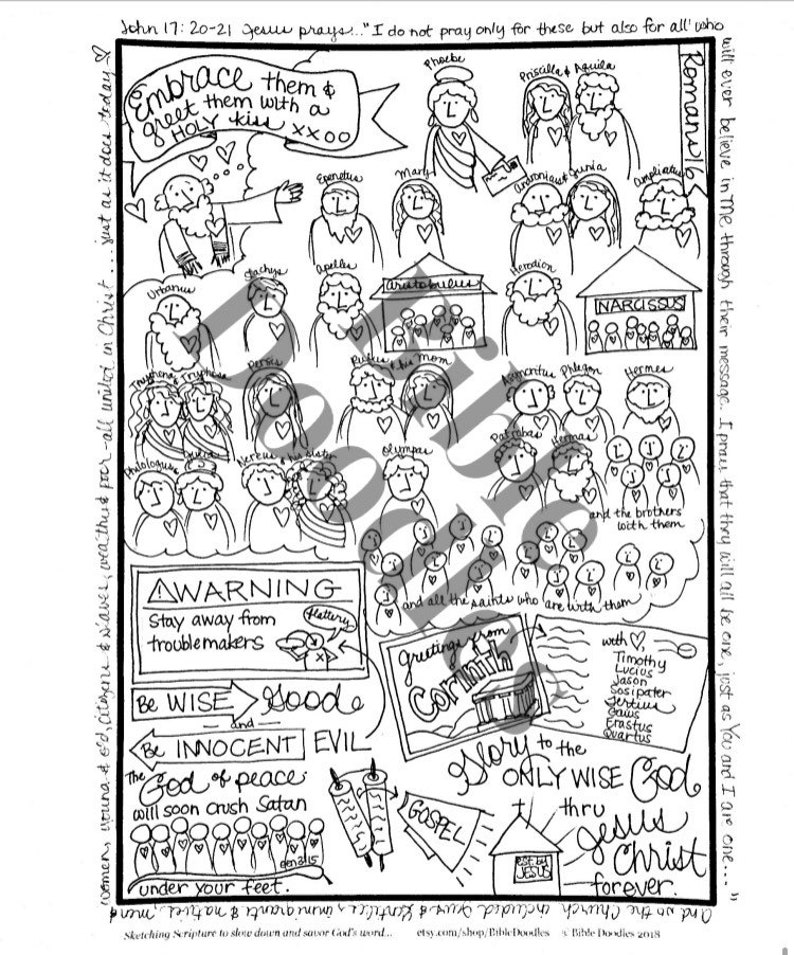 John 17:20-21 Jesus prays..."I do not pray only for these but also for all who
will ever believe in Me through their message. I pray that they will all be one, just as You and I are one..."
And so the Church included Jews & Gentiles, immigrants & natives, men &
women, young & old, citizens & slaves, wealthy & poor-all united in Christ... just as it does today
Romans 16
Embrace them &
greet them with a
HOLY kiss xxoo
Phoebe
Priscilla & Aquila
Epenetus
Mary
Andronicus & Junia
Ampliatus
Urbanus
Stachys
Apelles
Aristobulus
Herodion
NARCISSUS
Tryphena & Tryphosa
Persis
Rufus & his Mom
Asyncritus
Phlegon
Hermes
Philologus
Julia
Nereus & his sister
Olympas
Patrobas
Hermas
and the brothers
with them
and all the saints who are with them
WARNING
Stay away from
troublemakers
flattery
Greetings from
Corinth
with
Timothy
Lucius
Jason
Sosipater
Tertius
Gaius
Erastus
Quartus
Be WISE
Good
and
Be INNOCENT
EVIL
The
God of peace
will soon crush Satan
Gen 3:15
under your feet.
GOSPEL
Glory to the
ONLY WISE God
thru
Jesus
Christ
forever.
est. by
JESUS
Bible
Doodles
Sketching Scripture to slow down and savor God's word... etsy.com/shop/BibleDoodles © Bible Doodles 2018